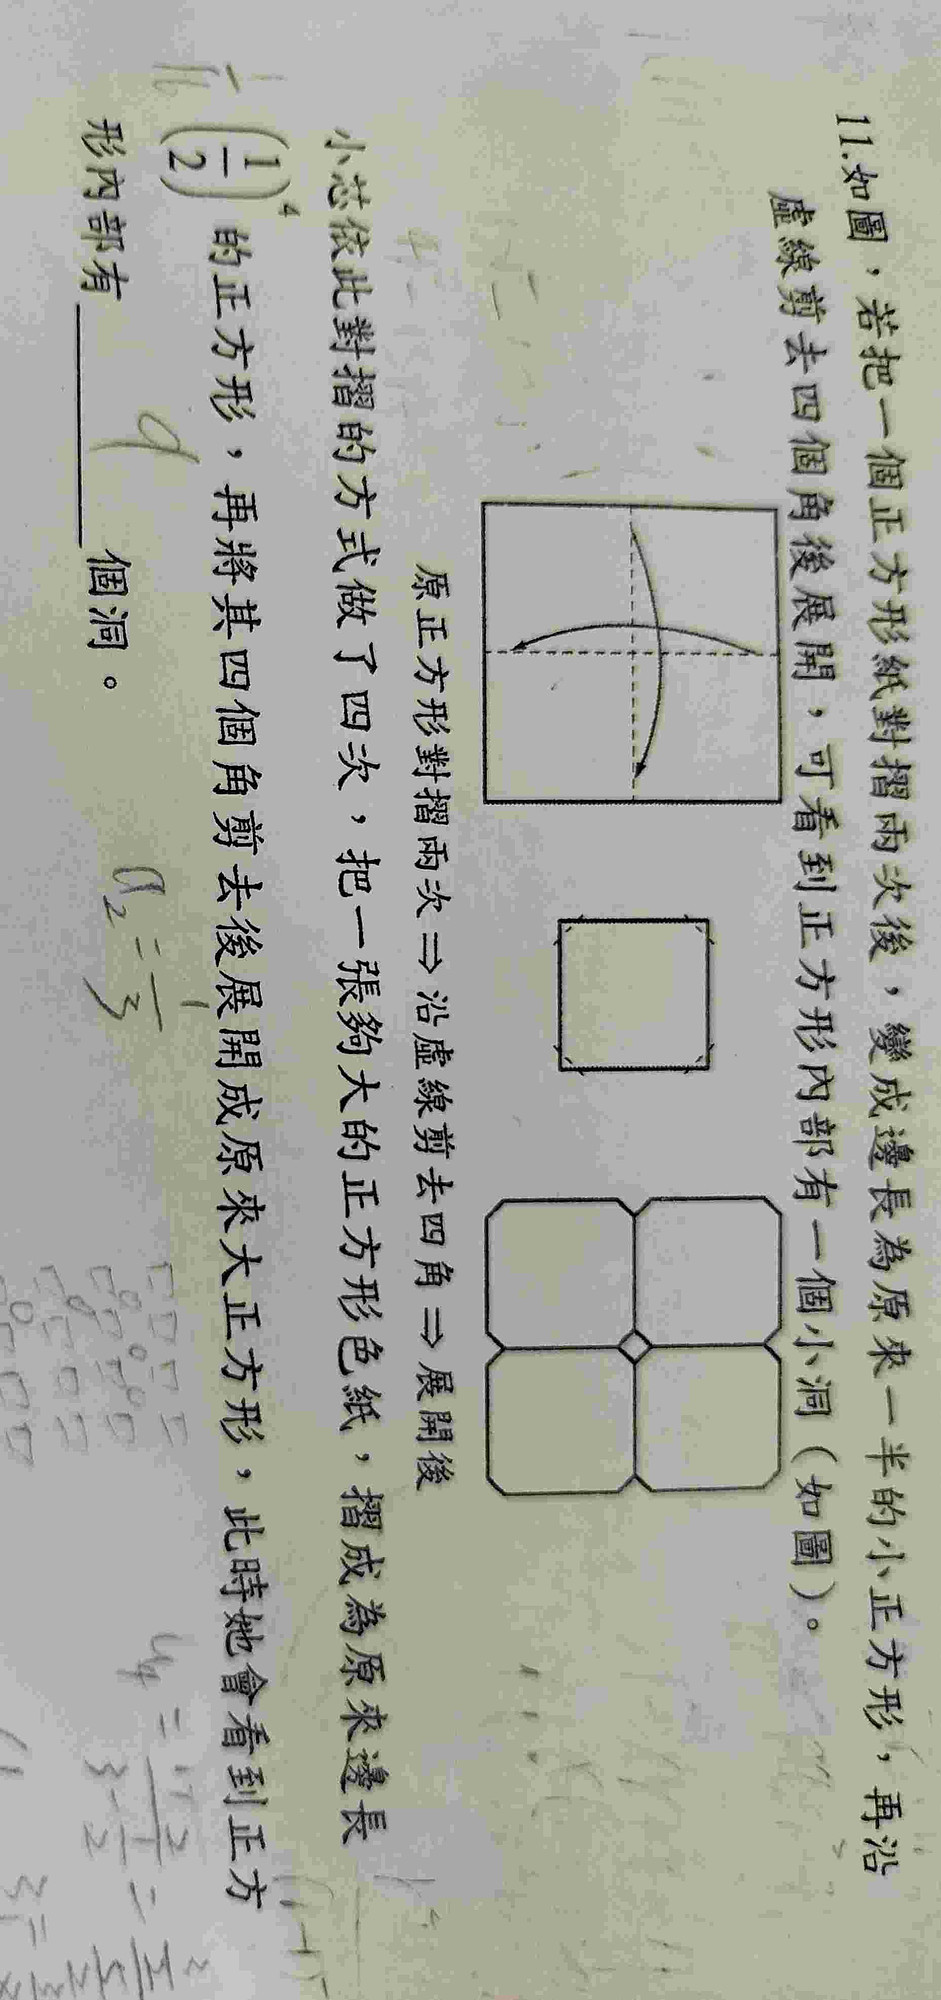 11.如圖，若把一個正方形紙對摺兩次後，變成邊長為原來一半的小正方形，再沿
虛線剪去四個角後展開，可看到正方形內部有一個小洞（如圖）。
原正方形對摺兩次⇒沿虛線剪去四角⇒展開後
小芯依此對摺的方式做了四次，把一張夠大的正方形色紙，摺成為原來邊長
(1/2)⁴ 的正方形，再將其四個角剪去後展開成原來大正方形，此時她會看到正方
形內部有______個洞。
9
a₂ = 1/3